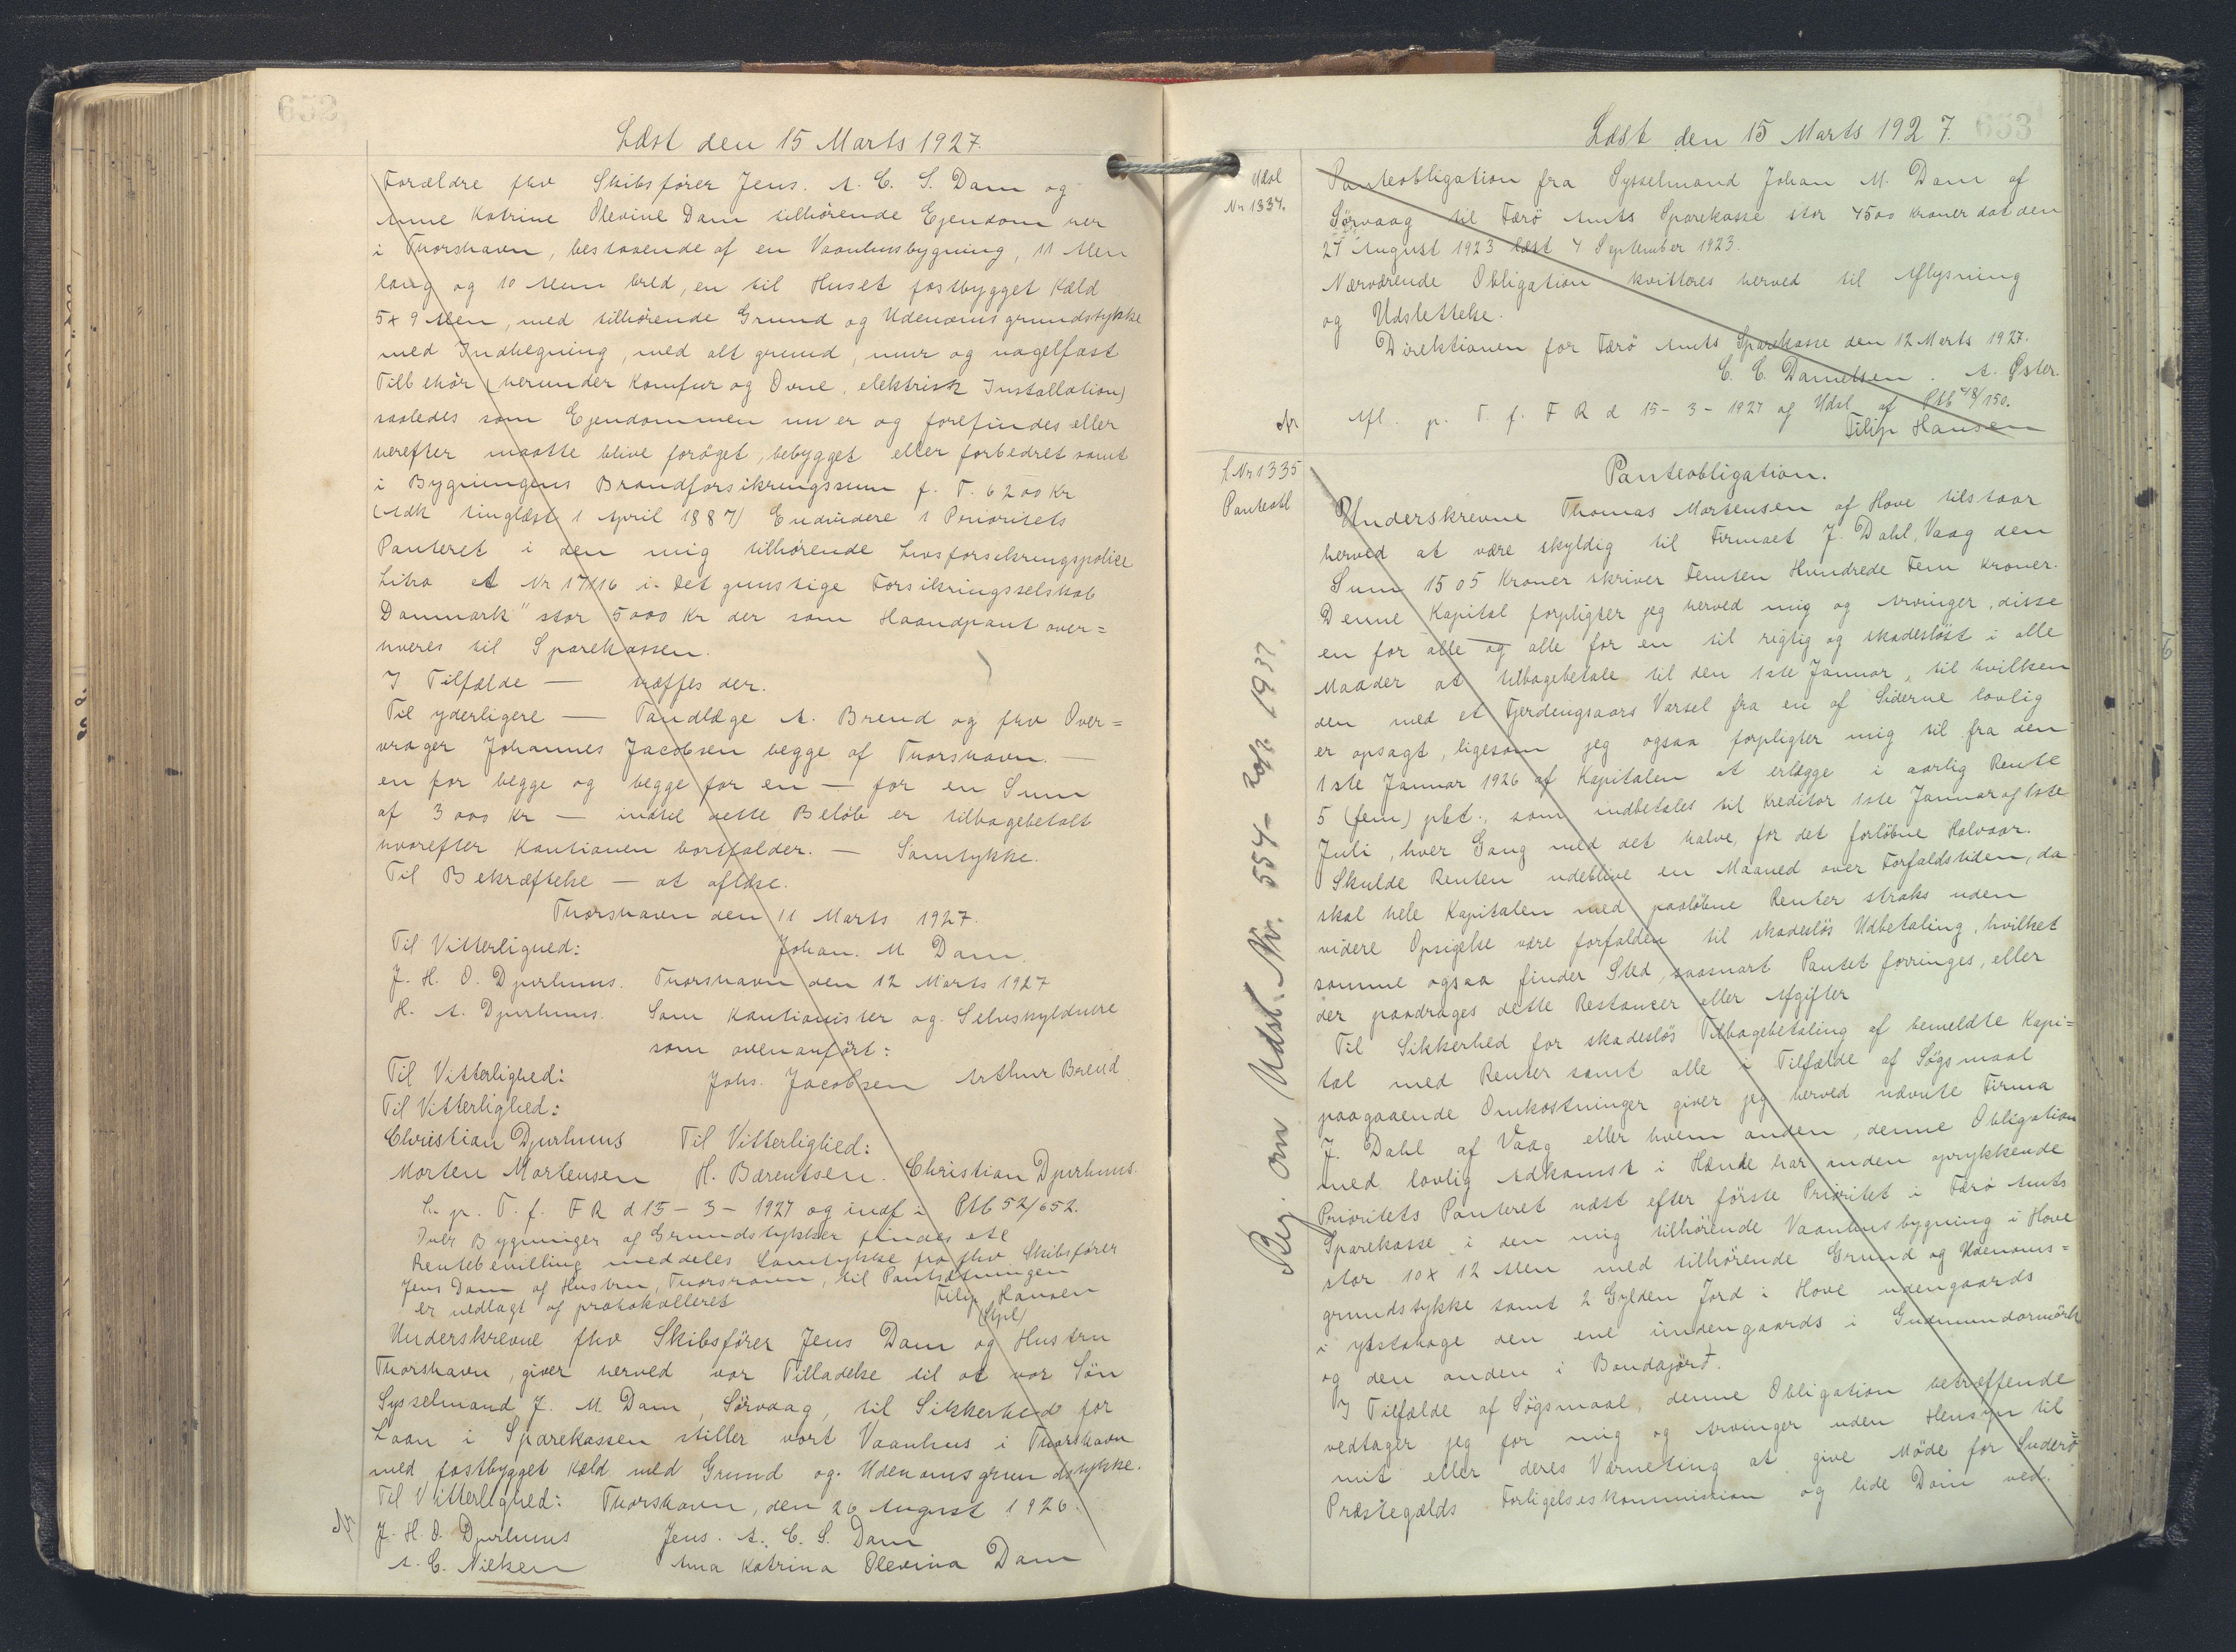 652
Læst den 15 Marts 1927.
Forældre fhv Skibsfører Jens. A. C. S. Dam og
Anne Katrine Olevine Dam tilhørende Ejendom her
i Thorshavn, bestaaende af en Vaanhusbygning, 11 Alen
lang og 10 Alen bred, en til Huset fastbygget Kæld
5x9 Alen, med tilhørende Grund og Udenomsgrundstykke
med Indhegning, med alt grund, mur og nagelfast
Tilbehør (herunder Komfur og Ovne, elektrisk Installation)
saaledes som Ejendommen nu er og forefindes eller
herefter maatte blive forøget, bebygget eller forbedret samt
i Bygningens Brandforsikringssum p. T. 6200 Kr
(Adk tinglæst 1 April 1887) Endvidere 1 Prioritets
Panteret i den mig tilhørende Livsforsikringspolice
Litra A Nr 17116 i det gunstige Forsikringsselskab
Danmark" stor 5000 Kr der som Haandpant over=
hveres til Sparekassen.
I Tilfælde — træffes der.
Til yderligere — Tandlæge A. Brend og fhv Over=
vrager Johannes Jacobsen begge af Thorshavn. —
en for begge og begge for en — for en Sum
af 3000 Kr — indtil dette Beløb er tilbagebetalt
hvorefter Kautionen bortfalder. — Samtykke.
Til Bekræftelse — at aflæse.
Thorshavn den 11 Marts 1927.
Til Vitterlighed: Johan. M Dam.
J. H. O. Djurhuus. Thorshavn den 12 Marts 1927
H. A. Djurhuus. Som Kautionister og Selvskyldnere
som ovenanført:
Til Vitterlighed: Johs. Jacobsen Arthur Brend
Til Vitterlighed:
Christian Djurhuus Til Vitterlighed:
Morten Mortensen H. Bærentsen. Christian Djurhuus.
L. p. T. f. F R d 15-3-1927 og indf i Ptb 52/652.
Over Bygninger og Grundstykker findes ete
Rentebevilling meddeles Samtykke fra fhv Skibsfører
Jens Dam og Hustru, Thorshavn, til Pantsætningen
er vedlagt og protokolleret Filip Hansen
(Spl)
Underskrevne fhv Skibsfører Jens Dam og Hustru
Thorshavn, giver herved vor Tilladelse til at vor Søn
Sysselmand J. M Dam, Sørvaag, til Sikkerhed for
Laan i Sparekassen stiller vort Vaanhus i Thorshavn
med fastbygget Kæld med Grund og Udenomsgrundstykke.
Til Vitterlighed: Thorshavn, den 26 August 1926.
J. H. O. Djurhuus Jens. A. C. S. Dam
A. C. Nielsen Anna Katrina Olevina Dam
653
Læst den 15 Marts 1927.
Udsl
Nr 1334.
Panteobligation fra Sysselmand Johan M. Dam af
Sørvaag til Færø Amts Sparekasse stor 4500 Kroner dat den
27 August 1923 læst 4 September 1923.
Nærværende Obligation kvitteres herved til Aflysning
og Udslettelse.
Direktionen for Færø Amts Sparekasse den 12 Marts 1927.
C. C. Danielsen. A. Øster.
Afl. p. T. f. F R d 15-3-1927 og Udsl af Ptb 48/150.
Filip Hansen
L Nr 1335
Panteobl
Panteobligation.
Underskrevne Thomas Mortensen af Hove tilstaar
herved at være skyldig til Firmaet J. Dahl, Vaag den
Sum 1505 Kroner skriver Femten Hundrede Fem Kroner.
Denne Kapital forpligter jeg herved mig og Arvinger, disse
en for alle og alle for en til rigtig og skadesløst i alle
Maader at tilbagebetale til den 1ste Januar, til hvilken
den med et Fjerdengsaars Varsel fra en af Siderne lovlig
er opsagt, ligesom jeg ogsaa forpligter mig til fra den
1ste Januar 1926 af Kapitalen at erlægge i aarlig Rente
5 (fem) pct., som indbetales til Kreditor 1ste Januar og 1ste
Juli, hver Gang med det halve, for det forløbne Halvaar.
Skulde Renten udeblive en Maaned over Forfaldstiden, da
skal hele Kapitalen med paaløbne Renter straks uden
videre Opsigelse være forfalden til skadesløs Udbetaling, hvilket
samme ogsaa finder Sted, saasnart Pantet forringes, eller
der paadrages dette Restancer eller Afgifter
Til Sikkerhed for skadesløs Tilbagebetaling af bemeldte Kapi=
tal med Renter samt alle i Tilfælde af Søgsmaal
paagaaende Omkostninger giver jeg herved nævnte Firma
J. Dahl af Vaag eller hvem anden, denne Obligation
med lovlig Adkomst i Hænde har anden oprykkende
Prioritets Panteret næst efter første Prioritet i Færø Amts
Sparekasse, i den mig tilhørende Vaanhusbygning i Hove
stor 10x12 Alen med tilhørende Grund og Udenoms=
grundstykke samt 2 Gylden Jord i Hove udengaards
i ytstahage den ene indengaards i Gudmundarmørk
og den anden i Bondajørd.
I Tilfælde af Søgsmaal denne Obligation betræffende
vedtager jeg for mig og Arvinger uden Hensyn til
mit eller deres Værneting at give Møde for Suderø
Præstegælds Forligelseskommission og lide Dom ved.
Bej. om Udsl. Nr. 554- 20/7 1937.